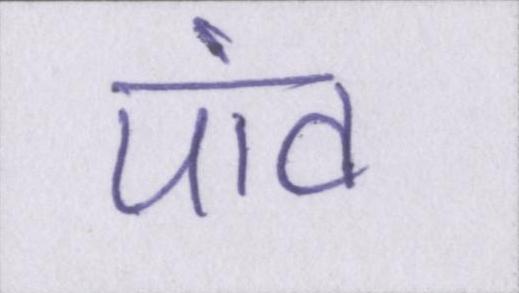 पांव